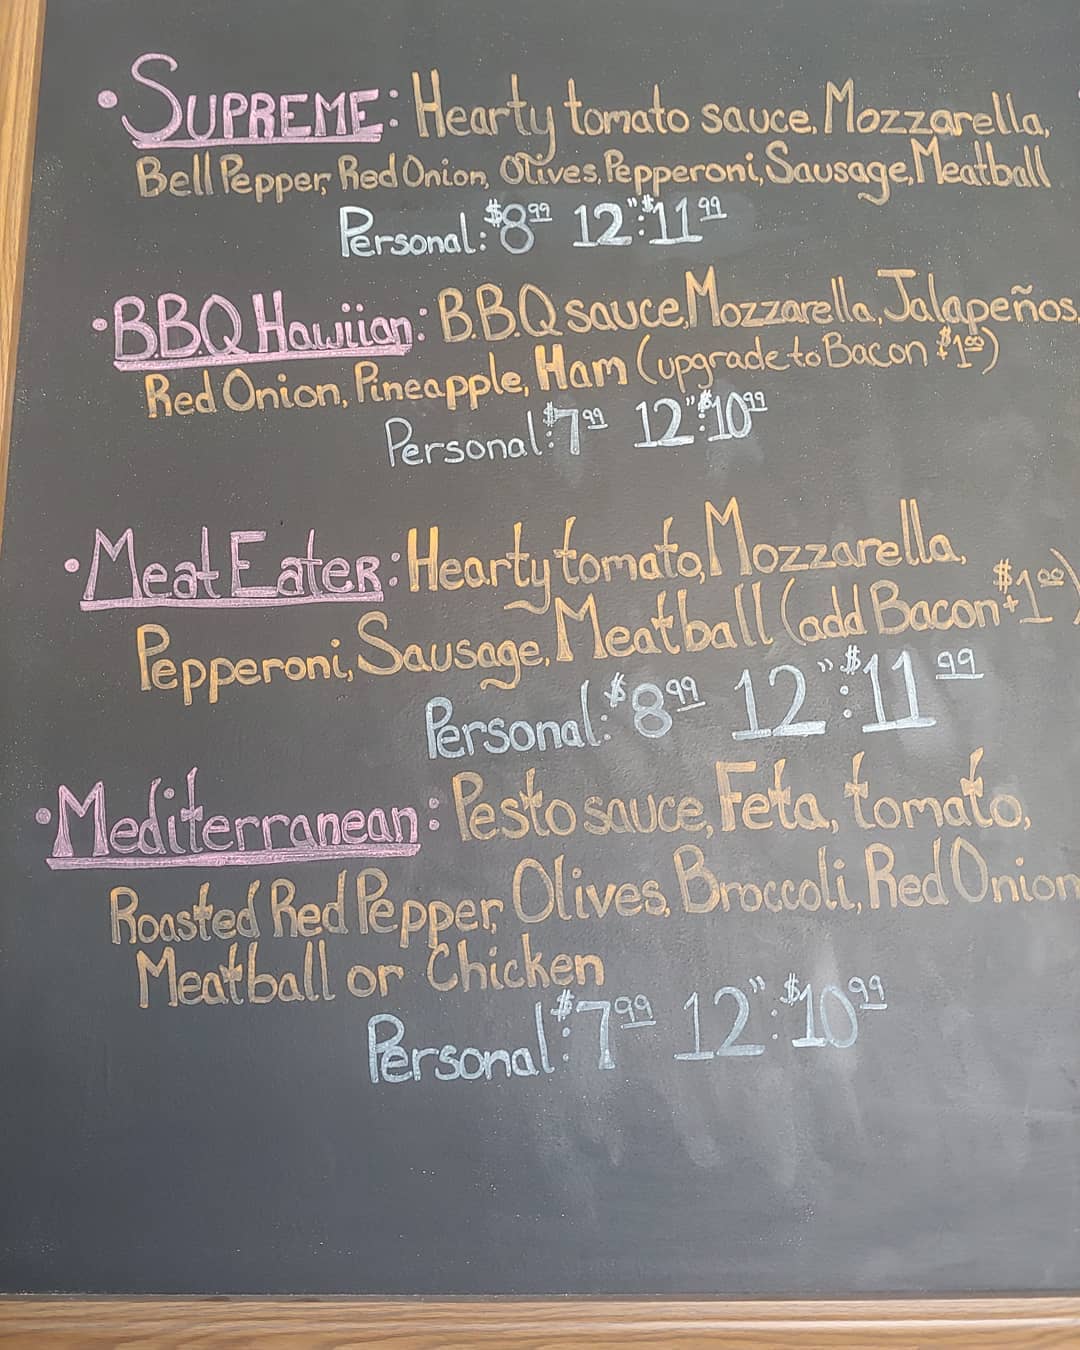 • SUPREME: Hearty tomato sauce, Mozzarella,
Bell Pepper, Red Onion, Olives, Pepperoni, Sausage, Meatball
Personal: $8.99 12": $11.99
• B.B.Q Hawiian: B.B.Q sauce, Mozzarella, Jalapeños,
Red Onion, Pineapple, Ham (upgrade to Bacon $1.00)
Personal: $7.99 12": $10.99
• Meat Eater: Hearty tomato, Mozzarella,
Pepperoni, Sausage, Meatball (add Bacon + $1.00)
Personal: $8.99 12": $11.99
• Mediterranean: Pesto sauce, Feta, tomato,
Roasted Red Pepper, Olives, Broccoli, Red Onion
Meatball or Chicken
Personal: $7.99 12": $10.99